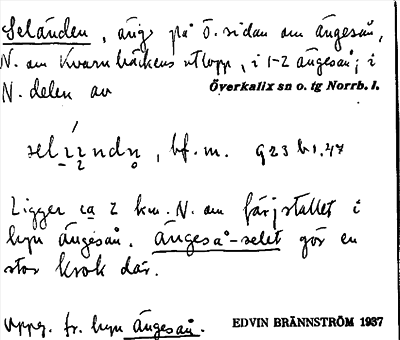 Seländen, äng på ö. sidan om Ängesån,
N. om Kvarnbäckens utlopp, i 1-2 Ängesån; i
N. delen av Överkalix sn o. tg Norrb. l.
bf. m. 923 b 1.47
Ligger ca 2 km. N. om färjstället i
byn Ängesån. Ängeså-selet gör en
stor krok där.
Uppg. fr. byn Ängesån. EDVIN BRÄNNSTRÖM 1937